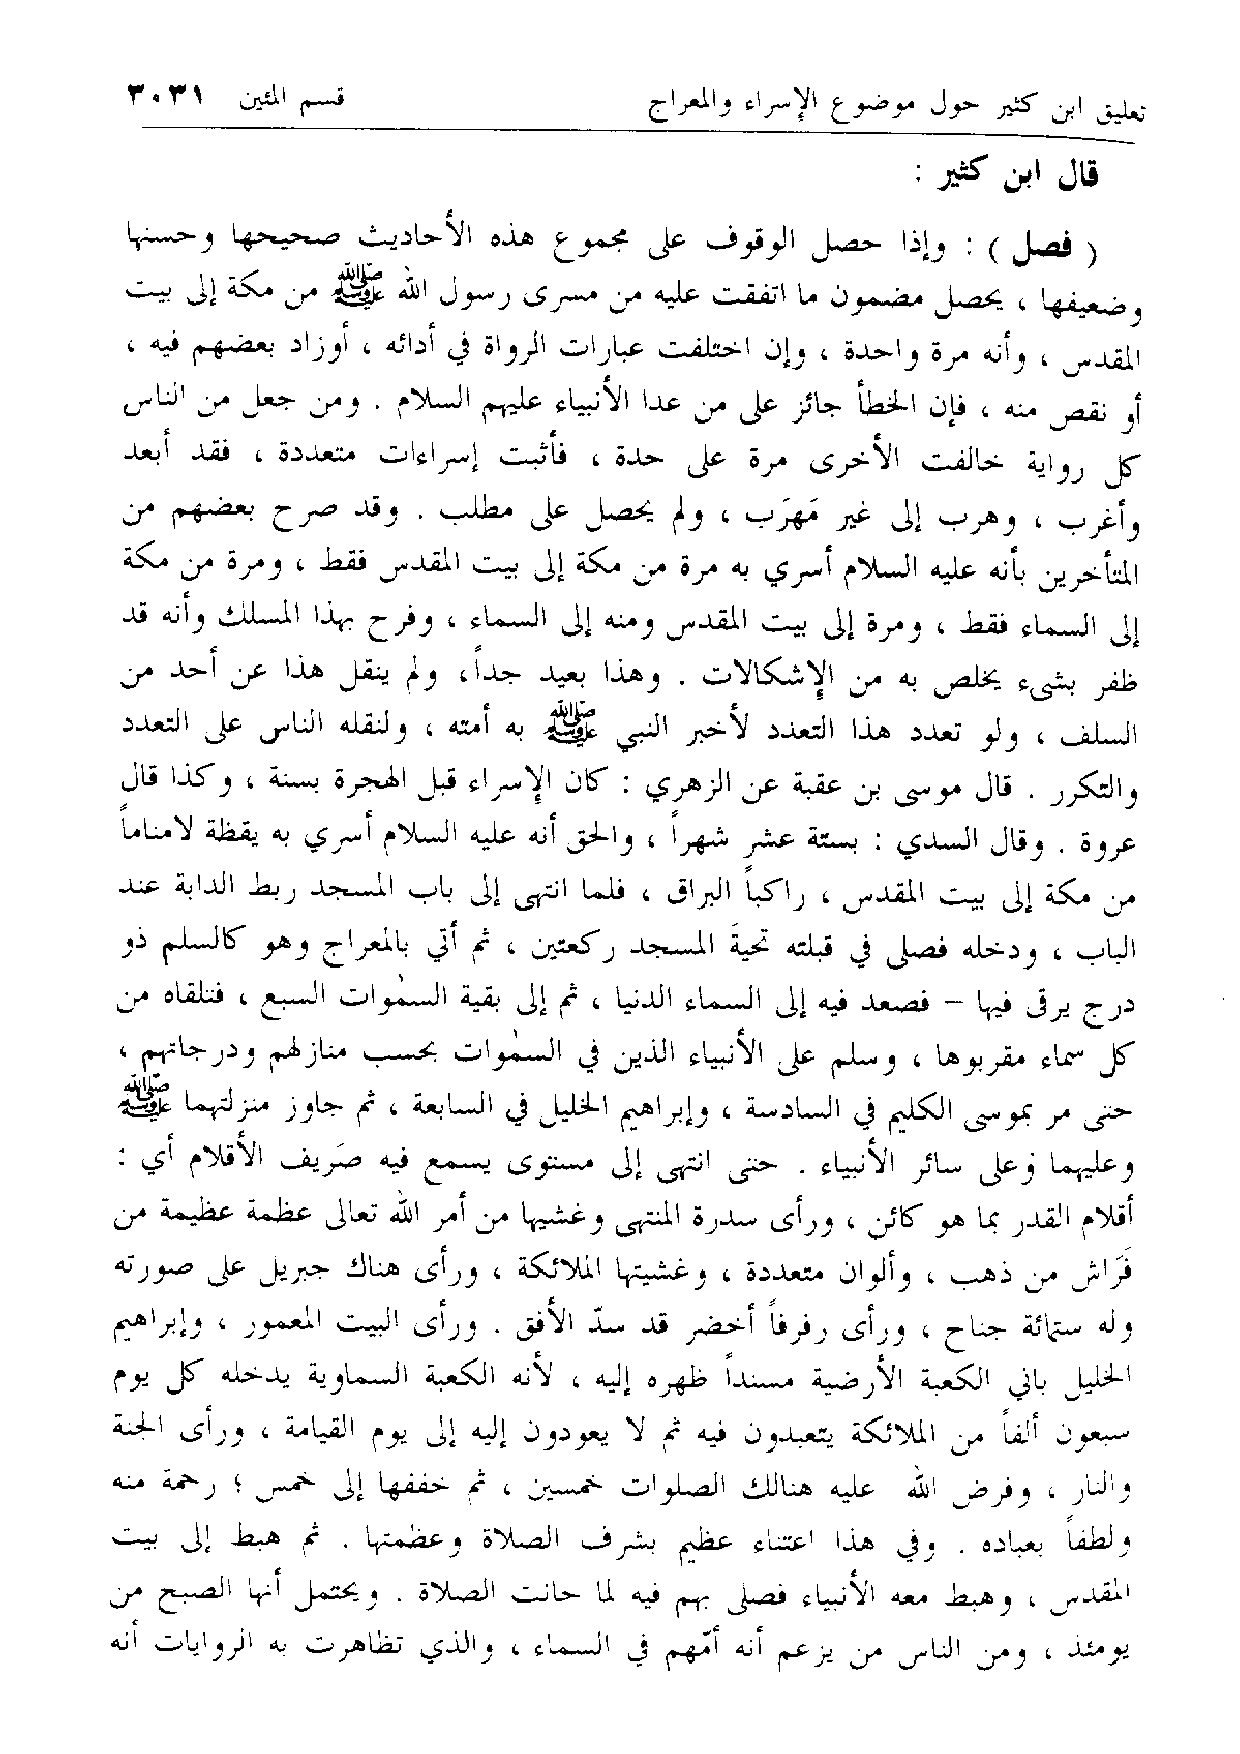 تعليق ابن كثير حول موضوع الإسراء والمعراج قسم المئين ٣٠٣١
قال ابن كثير :
( فصل ) : وإذا حصل الوقوف على مجموع هذه الأحاديث صحيحها وحسنها
وضعيفها ، يحصل مضمون ما اتفقت عليه من مسرى رسول الله ﷺ من مكة إلى بيت
المقدس ، وأنه مرة واحدة ، وإن اختلفت عبارات الرواة في أدائه ، أوزاد بعضهم فيه ،
أو نقص منه ، فإن الخطأ جائز على من عدا الأنبياء عليهم السلام . ومن جعل من الناس
كل رواية خالفت الأخرى مرة على حدة ، فأثبت إسراءات متعددة ، فقد أبعد
وأغرب ، وهرب إلى غير مَهرَب ، ولم يحصل على مطلب . وقد صرح بعضهم من
المتأخرين بأنه عليه السلام أسري به مرة من مكة إلى بيت المقدس فقط ، ومرة من مكة
إلى السماء فقط ، ومرة إلى بيت المقدس ومنه إلى السماء ، وفرح بهذا المسلك وأنه قد
ظفر بشيء يخلص به من الإشكالات . وهذا بعيد جداً، ولم ينقل هذا عن أحد من
السلف ، ولو تعدد هذا التعدد لأخبر النبي ﷺ به أمته ، ولنقله الناس على التعدد
والتكرر . قال موسى بن عقبة عن الزهري : كان الإسراء قبل الهجرة بسنة ، وكذا قال
عروة . وقال السدي : بستة عشر شهراً ، والحق أنه عليه السلام أسري به يقظة لامناماً
من مكة إلى بيت المقدس ، راكباً البراق ، فلما انتهى إلى باب المسجد ربط الدابة عند
الباب ، ودخله فصلى في قبلته تحيةَ المسجد ركعتين ، ثم أتي بالمعراج وهو كالسلم ذو
درج يرقى فيها – فصعد فيه إلى السماء الدنيا ، ثم إلى بقية السمٰوات السبع ، فتلقاه من
كل سماء مقربوها ، وسلم على الأنبياء الذين في السمٰوات بحسب منازلهم ودرجاتهم ،
حتى مر بموسى الكليم في السادسة ، وإبراهيم الخليل في السابعة ، ثم جاوز منزلتهما ﷺ
وعليهما وعلى سائر الأنبياء . حتى انتهى إلى مستوى يسمع فيه صَريف الأقلام أي :
أقلام القدر بما هو كائن ، ورأى سدرة المنتهى وغشيها من أمر الله تعالى عظمة عظيمة من
فَرَاش من ذهب ، وألوان متعددة ، وغشيتها الملائكة ، ورأى هناك جبريل على صورته
وله ستمائة جناح ، ورأى رفرفاً أخضر قد سدّ الأفق . ورأى البيت المعمور ، وإبراهيم
الخليل باني الكعبة الأرضية مسنداً ظهره إليه ، لأنه الكعبة السماوية يدخله كل يوم
سبعون ألفاً من الملائكة يتعبدون فيه ثم لا يعودون إليه إلى يوم القيامة ، ورأى الجنة
والنار ، وفرض الله عليه هنالك الصلوات خمسين ، ثم خففها إلى خمس ؛ رحمة منه
ولطفاً بعباده . وفي هذا اعتناء عظيم بشرف الصلاة وعظمتها . ثم هبط إلى بيت
المقدس ، وهبط معه الأنبياء فصلى بهم فيه لما حانت الصلاة . ويحتمل أنها الصبح من
يومئذ ، ومن الناس من يزعم أنه أمّهم في السماء ، والذي تظاهرت به الروايات أنه